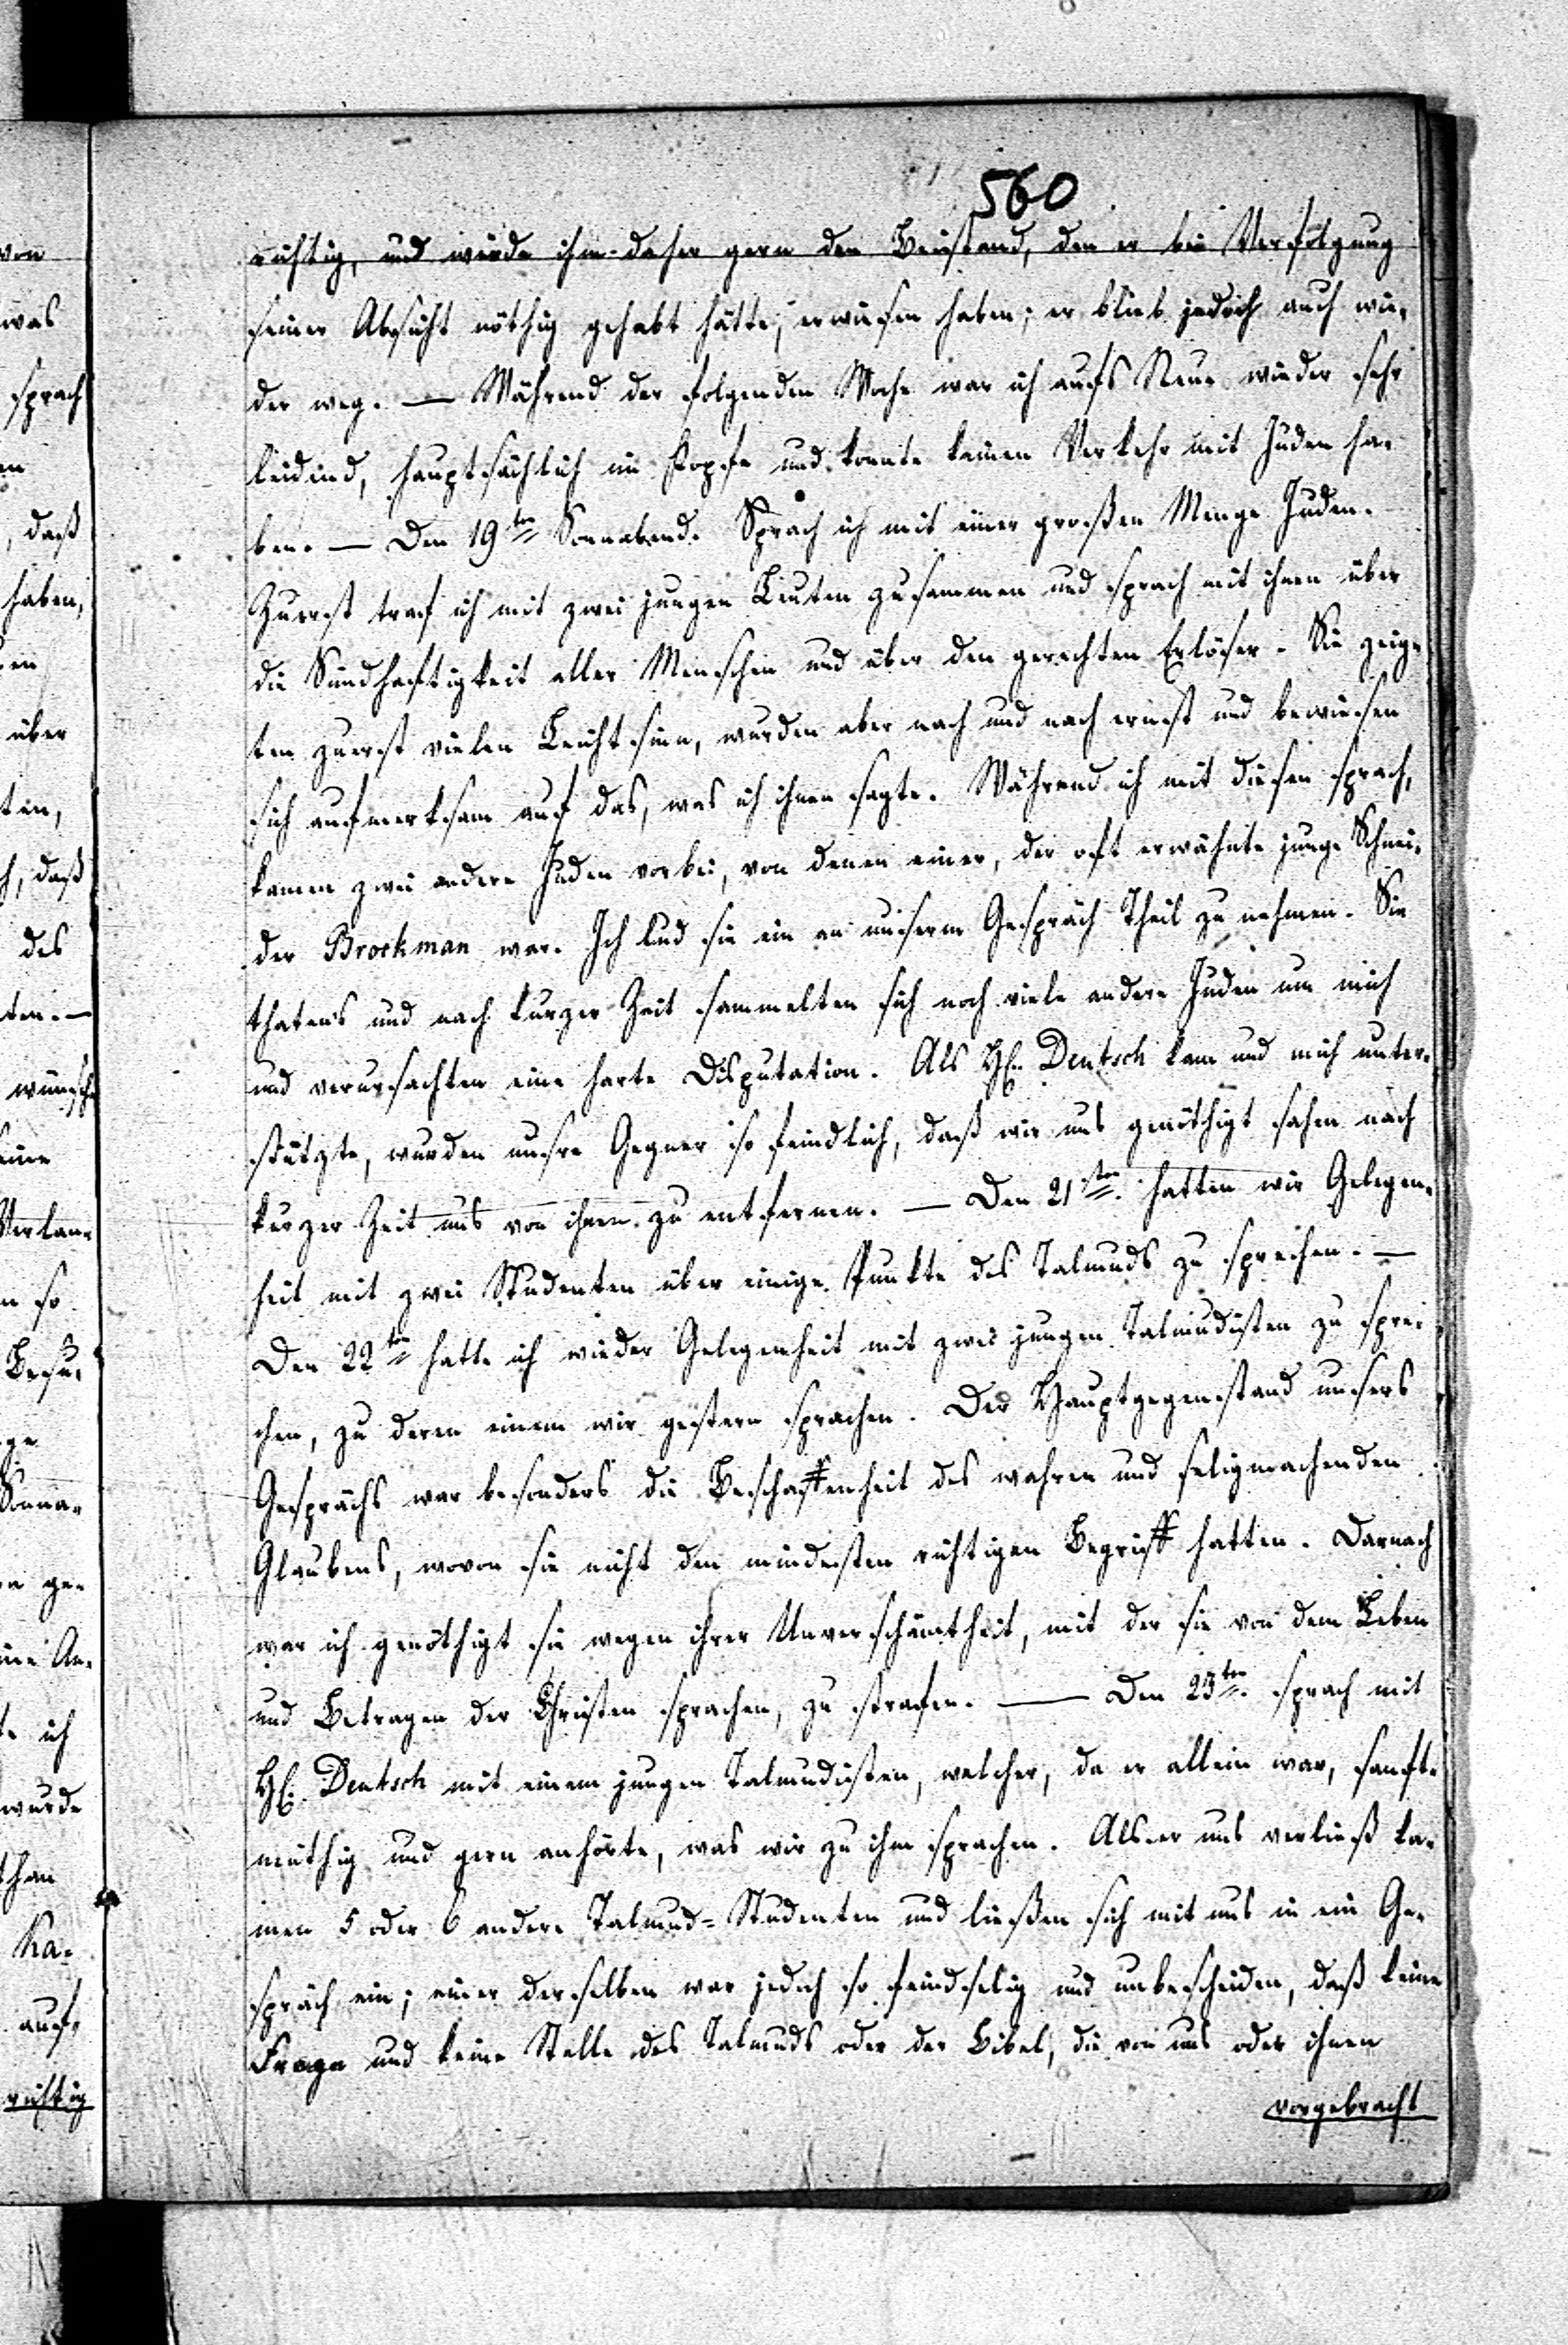 560
richtig, und würde ihm daher gern den Beistand, den er bei Verfolgung
seiner Absicht nöthig gehabt hätte, erwiesen haben; er blieb jedoch auch wie-
der weg. — Während der folgenden Woche war ich aufs Neue wieder sehr
leidend, hauptsächlich im Kopfe und konnte keinen Verkehr mit Juden ha-
ben. — Den 19ten Sonnabend. Sprach ich mit einer großen Menge Juden.
Zuerst traf ich mit zwei jungen Leuten zusammen und sprach mit ihnen über
die Sündhaftigkeit aller Menschen und über den gerechten Erlöser. Sie zeig-
ten zuerst vielen Leichtsinn, wurden aber nach und nach ernst und bewiesen
sich aufmerksam auf das, was ich ihnen sagte. Während ich mit diesen sprach,
kamen zwei andere Juden vorbei, von denen einer, der oft erwähnte junge Schnei-
der Brockman war. Ich lud sie ein an unserm Gespräch Theil zu nehmen. Sie
thatens und nach kurzer Zeit sammelten sich noch viele andere Juden um mich
und verursachten eine harte Disputation. Als H. Deutsch kam und mich unter-
stützte, wurden unsre Gegner so feindlich, daß wir uns genöthigt sahen nach
kurzer Zeit uns von ihnen zu entfernen. — Den 21sten hatten wir Gelegen-
heit mit zwei Studenten über einige Punkte des Talmuds zu sprechen. —
Den 22ten hatte ich wieder Gelegenheit mit zwei jungen Talmudisten zu spre-
chen, zu deren einem wir gestern sprachen. Der Hauptgegenstand unsers
Gesprächs war besonders die Beschaffenheit des wahren und seligmachenden
Glaubens, wovon sie nicht den mindesten richtigen Begriff hatten. Darnach
war ich genöthigt sie wegen ihrer Unverschämtheit, mit der sie von dem Leben
und Betragen der Christen sprachen, zu strafen. — Den 23ten sprach mit
H. Deutsch mit einem jungen Talmudisten, welcher, da er allein war, sanft-
müthig und gern anhörte, was wir zu ihm sprachen. Als er uns verließ ka-
men 5 oder 6 andere Talmud-Studenten und ließen sich mit uns in ein Ge-
spräch ein; einer derselben war jedoch so feindselig und unbescheiden, daß keine
Frage und keine Stelle des Talmuds oder der Bibel, die von uns oder ihnen
vorgebracht